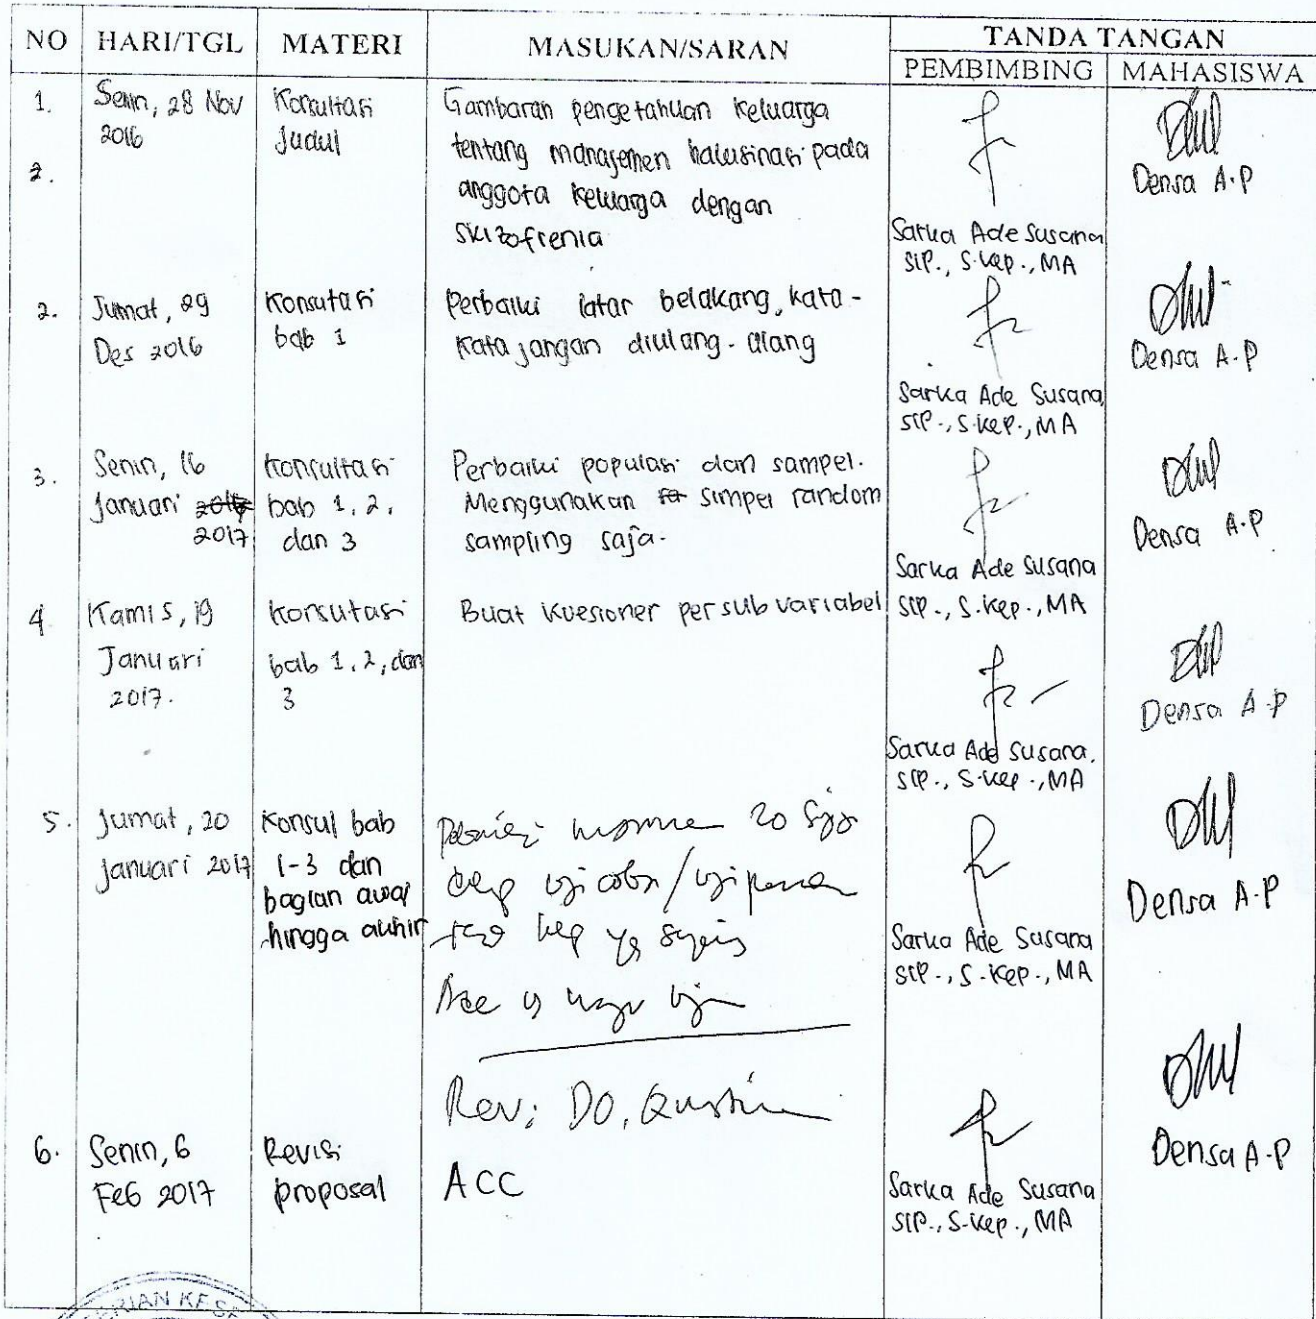 NO HARI/TGL MATERI MASUKAN/SARAN TANDA TANGAN
PEMBIMBING MAHASISWA
1. Senin, 28 Nov 2016
Konsultasi
Judul
Gambaran pengetahuan keluarga
tentang managemen halusinasi pada
anggota keluarga dengan
skizofrenia
Sarka Ade Susana
SIP., S.Kep., MA
Densa A.P
2.
2. Jumat, 29
Des 2016
Konsutasi
bab 1
Perbaiki latar belakang, kata-
kata jangan diulang-ulang
Sarka Ade Susana,
SIP., S.Kep., MA
Densa A.P
3. Senin, 16
Januari
2017
Konsultasi
bab 1, 2,
dan 3
Perbaiki populasi dan sampel.
Menggunakan simpel random
sampling saja.
Sarka Ade Susana
SIP., S.Kep., MA
Densa A.P
4. Kamis, 19
Januari
2017.
Konsutasi
bab 1, 2, dan
3
Buat kuesioner per sub variabel
Sarka Ade Susana,
SIP., S.Kep., MA
Densa A.P
5. Jumat, 20
Januari 2017
Konsul bab
1-3 dan
bagian awal
hingga akhir
Sarka Ade Susana
SIP., S.Kep., MA
Densa A.P
Rev: DO,
6. Senin, 6
Feb 2017
Revisi
proposal
ACC
Sarka Ade Susana
SIP., S.Kep., MA
Densa A.P